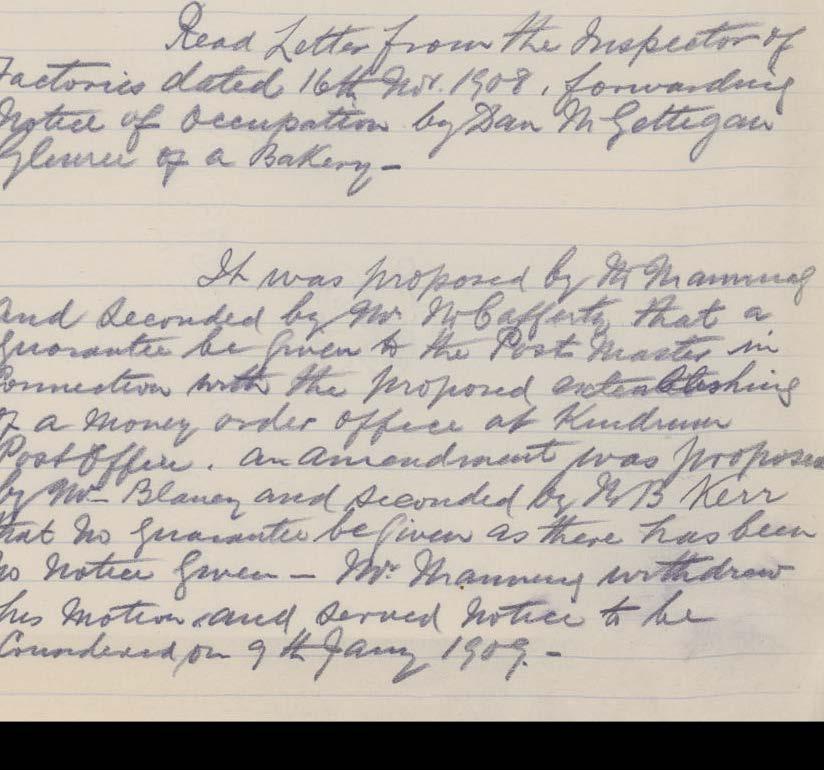 Read Letter from the Inspector of
Factories dated 16th Novr. 1908, forwarding
Notice of Occupation by Dan McGettigan
Glenree of a Bakery –
It was proposed by Mr Manning
and seconded by Mr McCafferty that a
guarantee be given to the Post Master in
Connection with the proposed establishing
of a money order office at Kindrum
Post Office. an amendment was proposed
by Mr Blaney and seconded by B Kerr
that no guarantee be given as there has been
no notice given – Mr. Manning withdrew
his motion and served notice to be
Considered on 9th Jany 1909. –